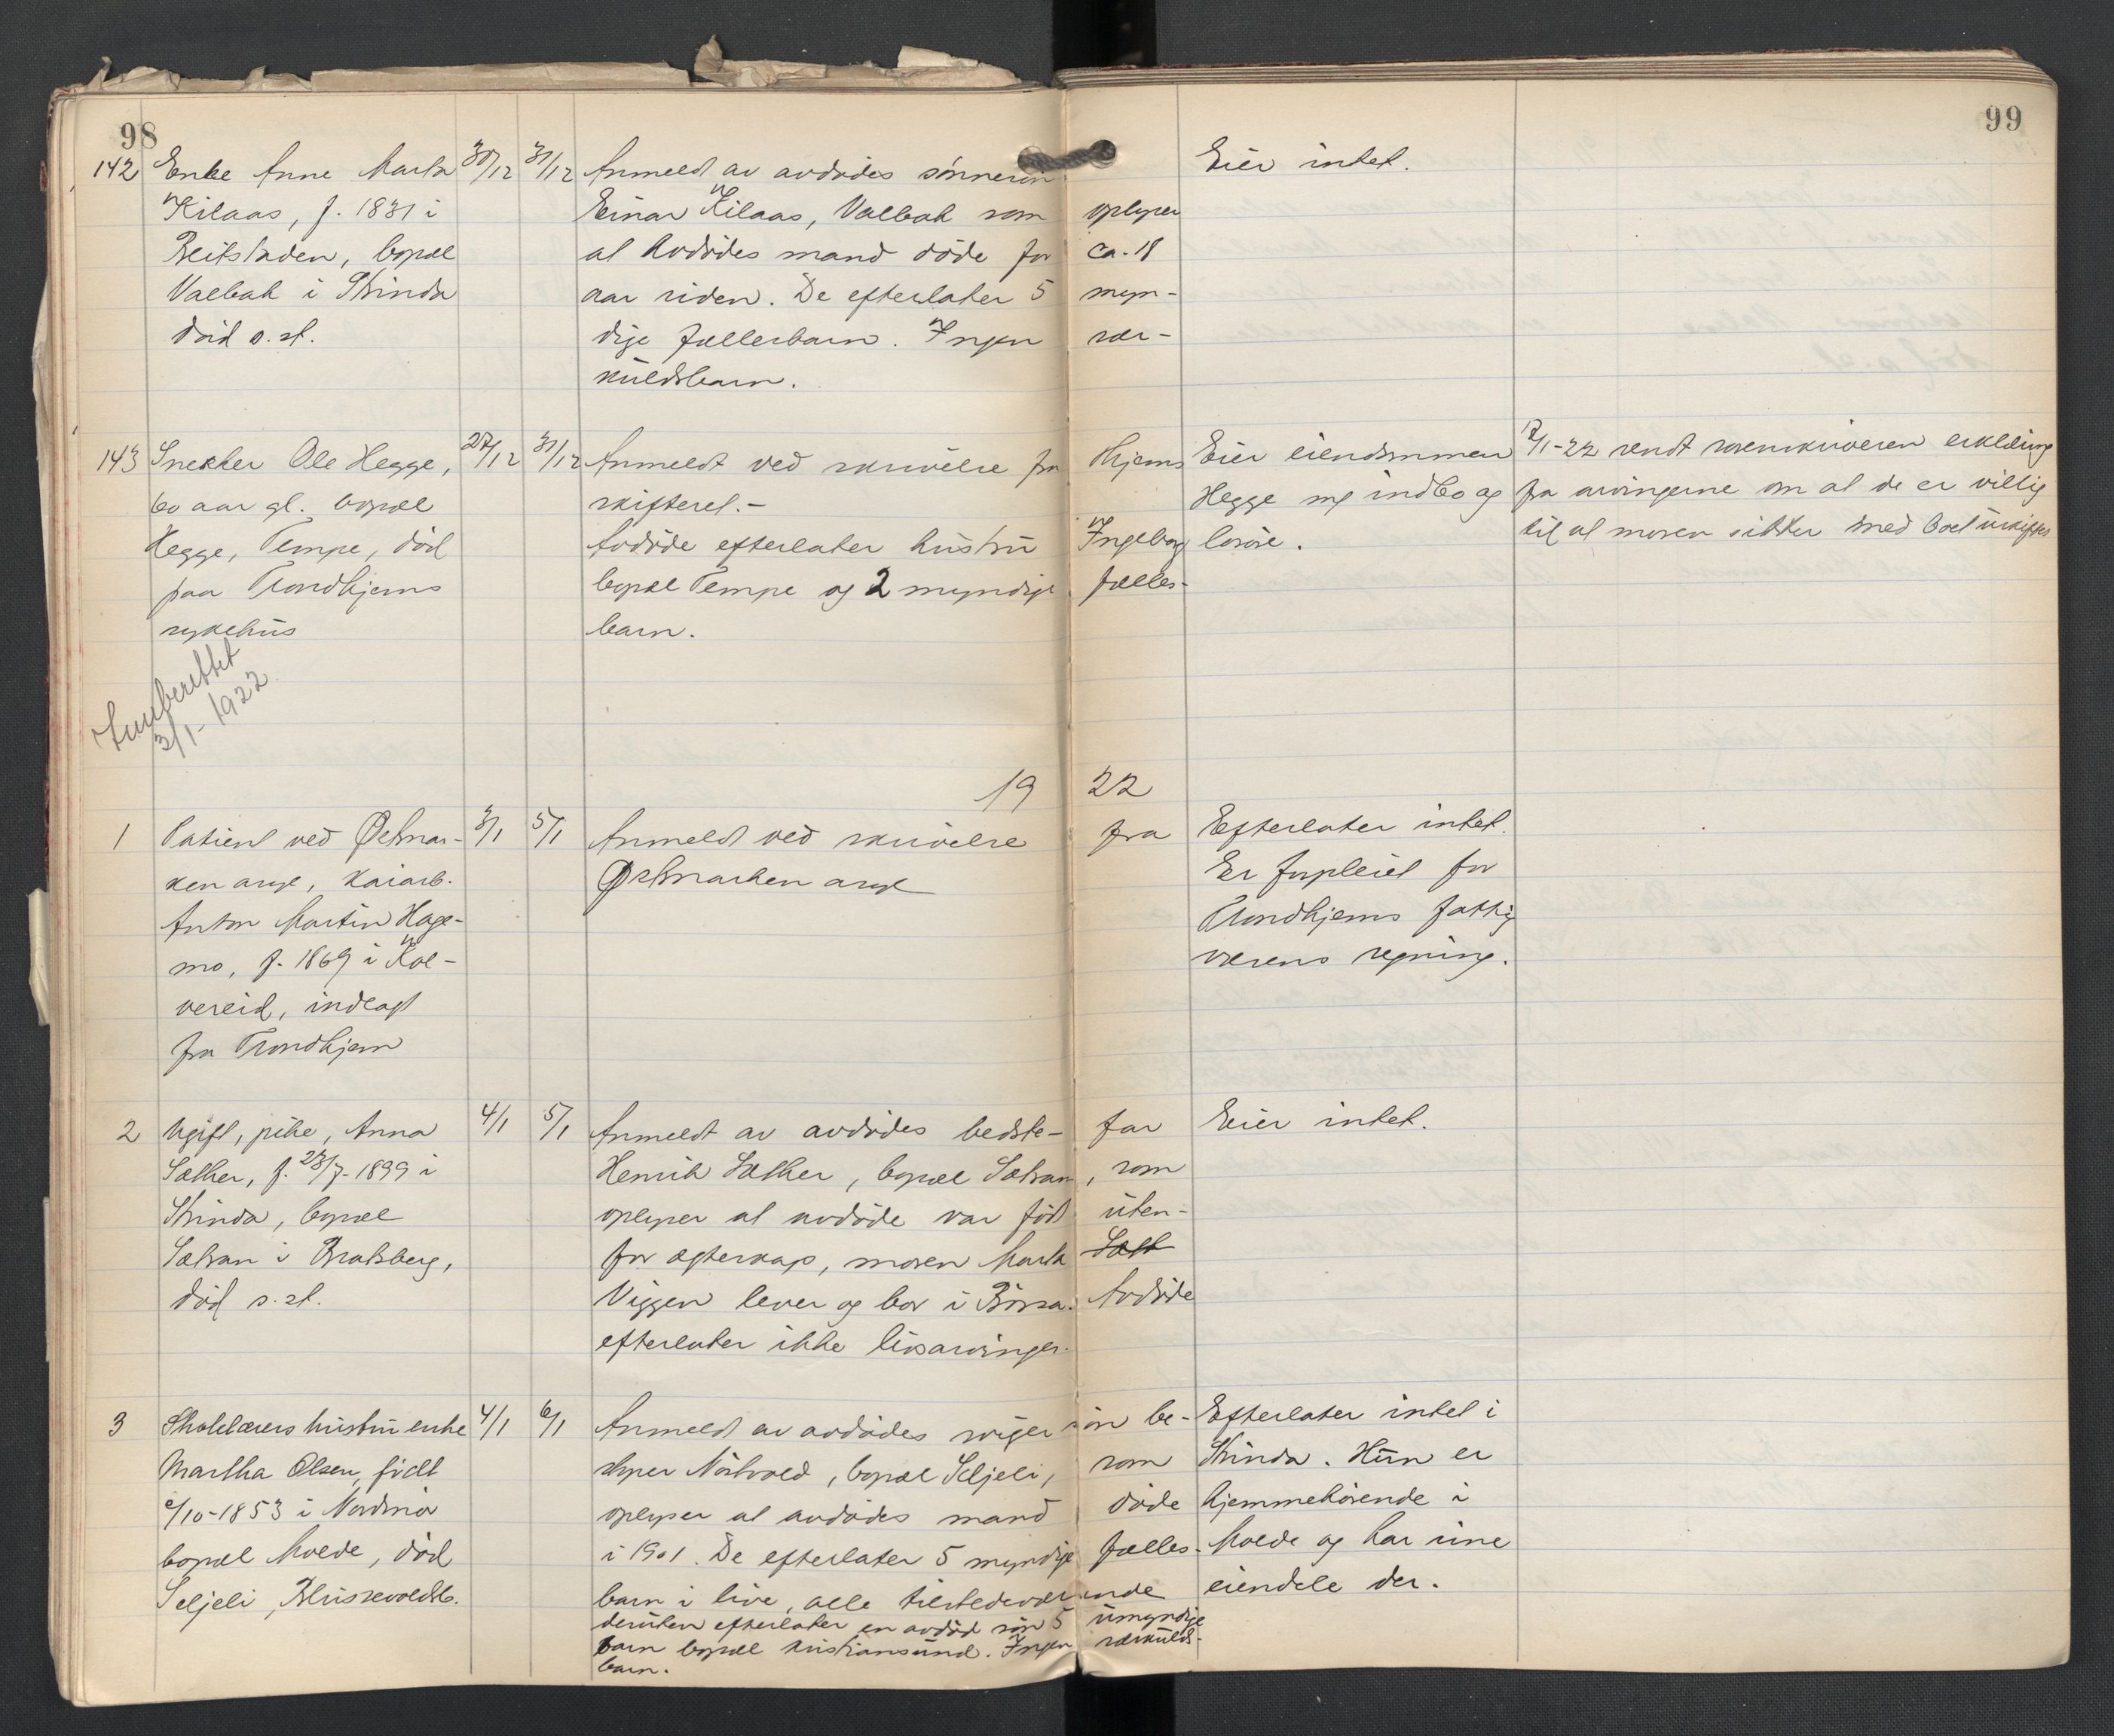 98
99
142 Enke Anne Marta 30/12 31/12 Anmeldt av avdødes sønnesøn Eier intet.
Kilaas, f. 1831 i Einar Kilaas, Valbak som oplyser
Beitstaden, bopæl at avdødes mand døde for ca. 18
Valbak i Strinda aar siden. De efterlater 5 myn-
død s. st. dige fællesbarn. Ingen sær-
kuldsbarn.
143 Snekker Ole Hegge, 27/12 31/12 Anmeldt ved skrivelse fra Hjems Eier eiendommen 17/1-22 sendt sorenskriveren erklæring
60 aar gl. bopæl skifteret.- Hegge m/ indbo og fra arvingerne om at de er villig
Hegge, Tempe, død Avdøde efterlater hustru Ingeborg løsøre. til at moren sitter med boet uskiftet
paa Trondhjems bopæl Tempe og 2 myndige fælles-
sykehus barn.
Innberettet
3/1-1922
19 22
1 Patient ved Østmar- 3/1 5/1 Anmeldt ved skrivelse fra Efterlater intet.
ken asyl, kaiarb. Østmarken asyl Er forpleiet for
Anton Martin Hage- Trondhjems fattig
mo, f. 1869 i Kol- væsens regning.
vereid, indlagt
fra Trondhjem
2 Ugift, pike, Anna 4/1 5/1 Anmeldt av avdødes bedste- far Eier intet.
Sæther, f. 28/7-1899 i Henrik Sæther, bopæl Solvan, som
Strinda, bopæl oplyser at avdøde var født uten-
Solvan i Bratsberg, for ægteskap, moren Marta Sæth
død s. st. Viggen lever og bor i Børsa. Avdøde
efterlater ikke livsarvinger.
3 Skolelærers hustru enke 4/1 6/1 Anmeldt av avdødes svigersøn be- Efterlater intet i
Martha Olsen, født styrer Nostvold, bopæl Seljeli, som Strinda. Hun er
/10-1853 i Nordmør oplyser at avdødes mand døde hjemmehørende i
bopæl Molde, død i 1901. De efterlater 5 myndige fælles- Molde og har sine
Seljeli, Blussevoldsb. barn i live, alle tilstedeværende eiendele der.
desuten efterlater en avdød søn 5 umyndige
barn bopæl Kristiansund. Ingen særkulds-
barn.